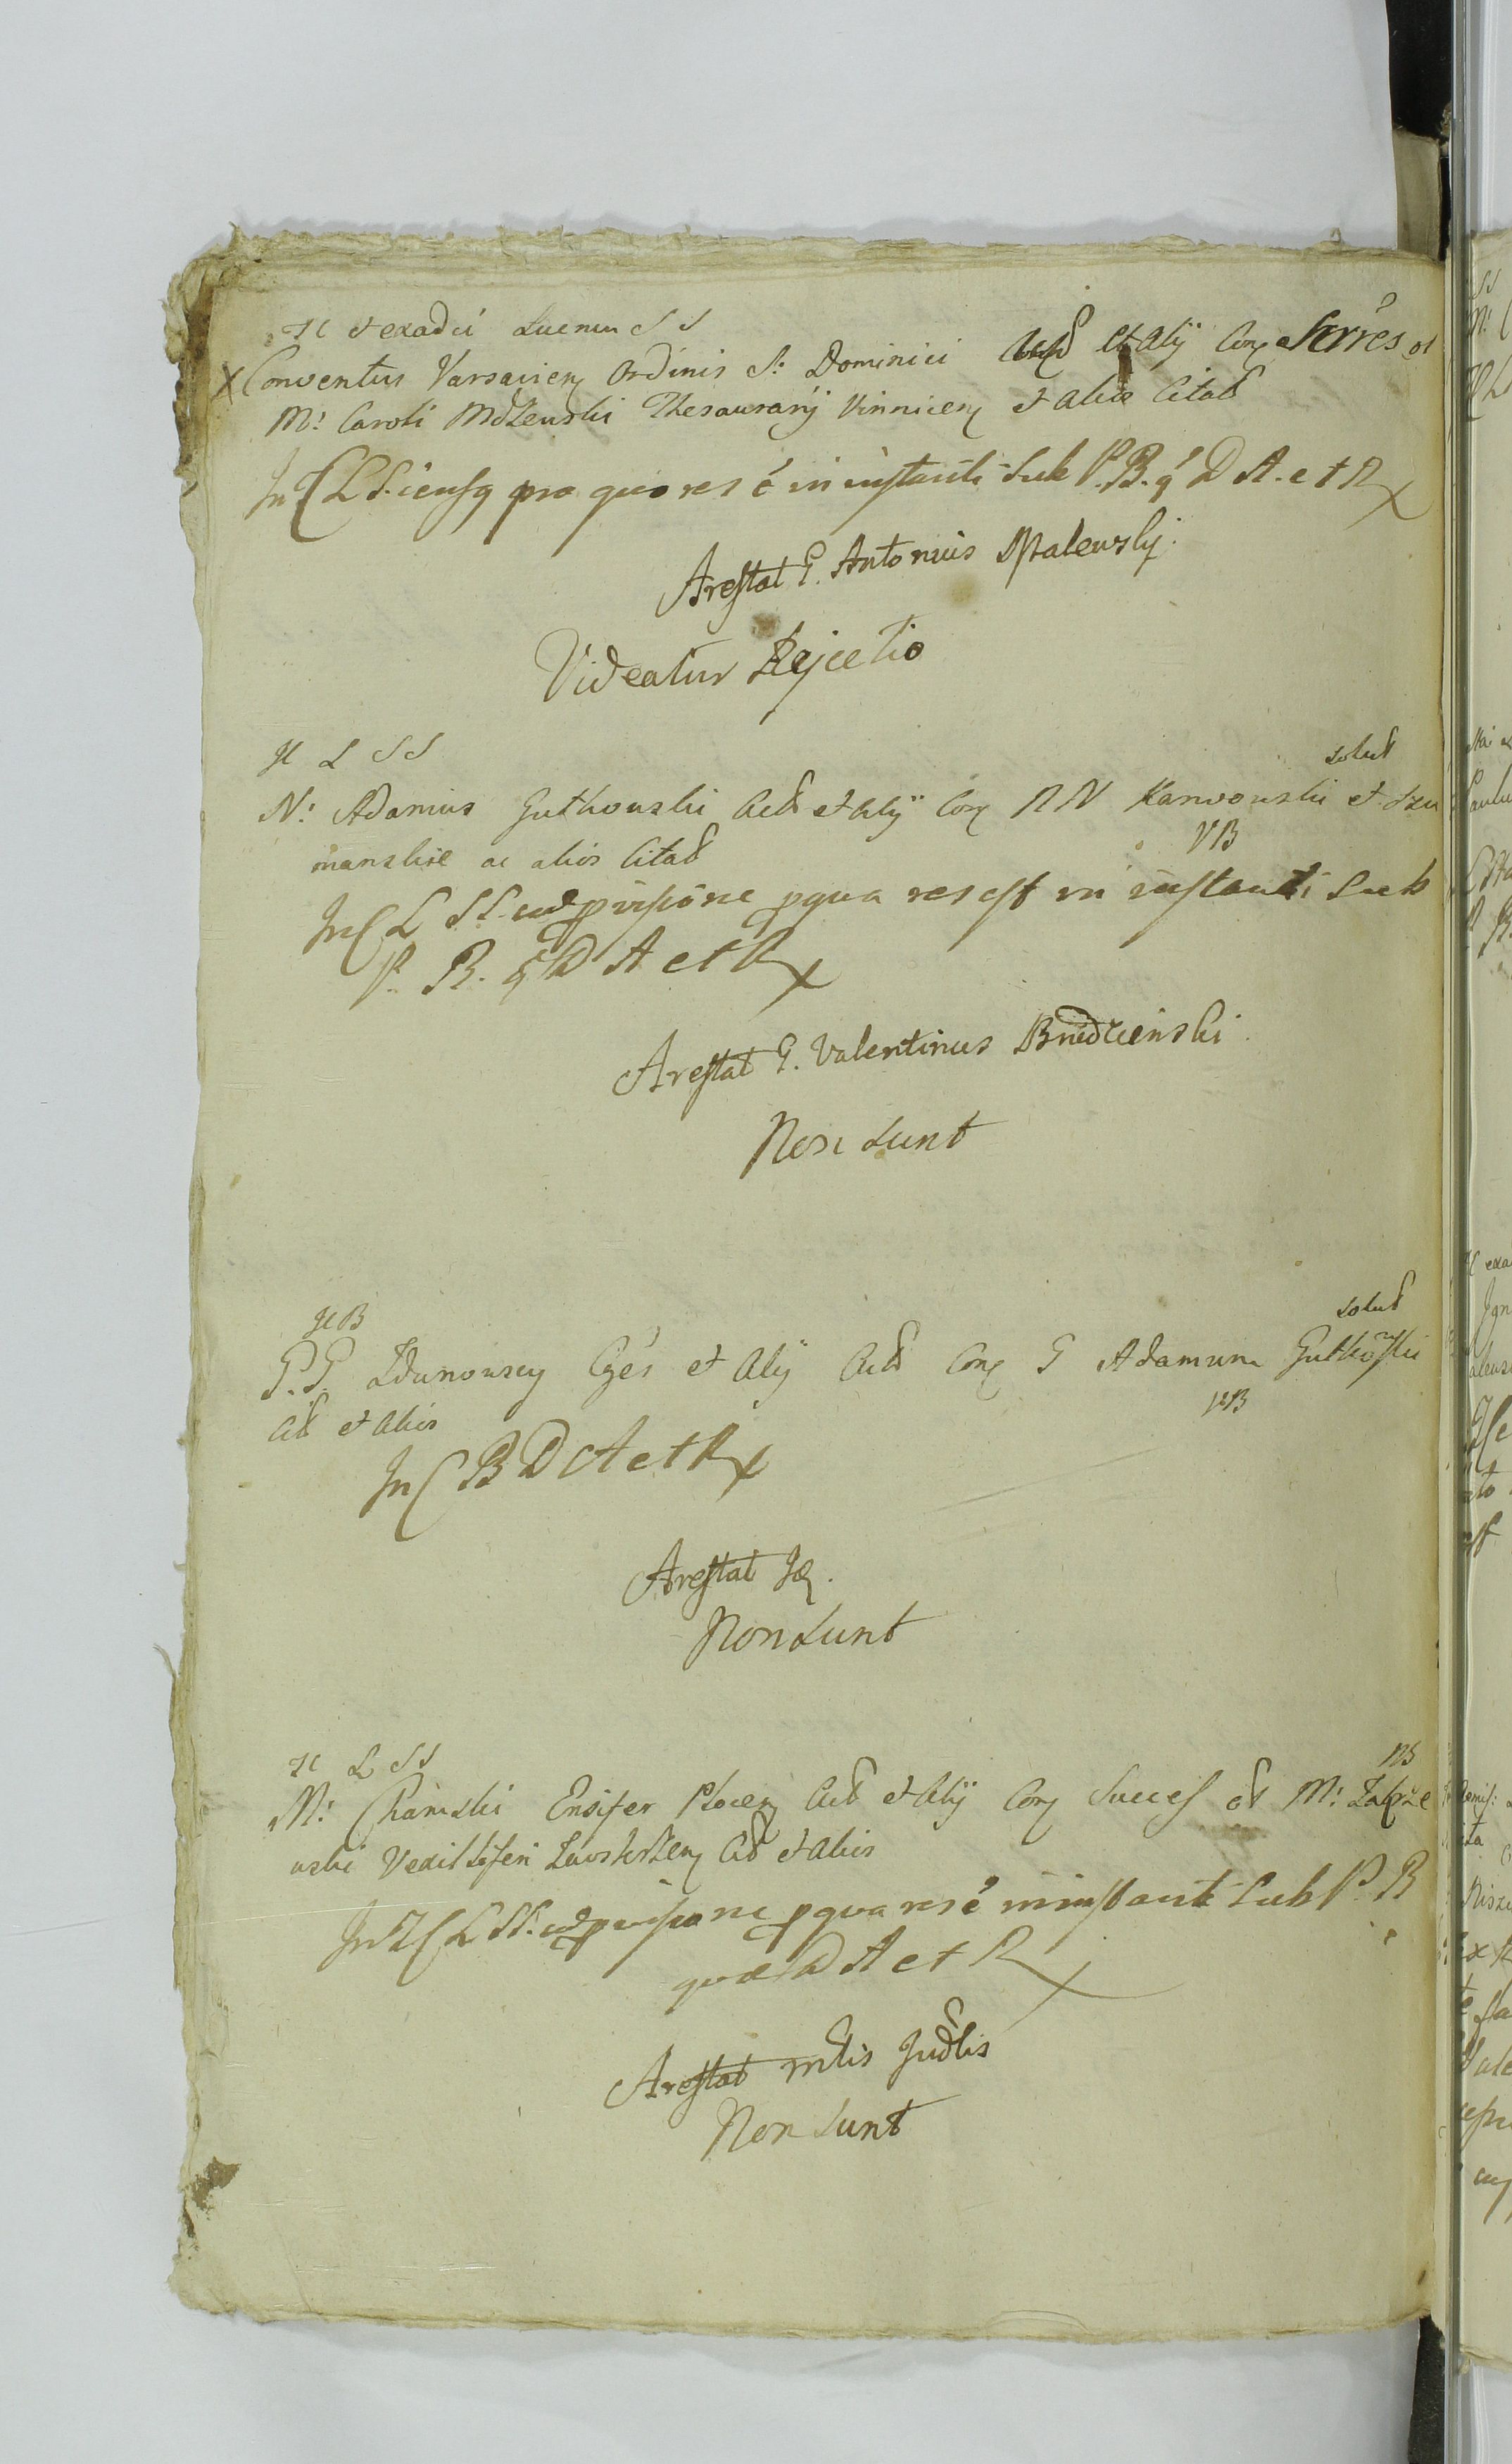 H et exadci Lucrum S S
X Conventus Varsavien Ordinis S: Dominici Actt et Alÿ Con Ssrres ol
M: Caroli Mdzewski Thesaurarÿ Vinnicen et alios Citatt
In C L S. iensq pro quo res é in instanti Sub P. B. q D A. et R
Arestat G. Antonius Opalewsky.
Videatur Rejectio
H L S S
solut
N: Adamus Gutkowski Actt et Alÿ Con NN Karwowski et Szu
VB
manskie ac alios Citatt
In C L SS. pvisione pqua res est in instanti Sub
P. B. q D A et R
Arestat G. Valentinus Bnedzieński.
Non Sunt
H B
solut
G. G. Zdunowscy Cges et Alÿ Actt Con G Adamum Gutkoski
Citt et Alios
VB
In C B D A et R
Arestat Id.
Non Sunt
H L S S
NS
M: Chamski Ensifer Plocen Actt et Alÿ Con Succes ol M: Zakrze
wski Vexilliferi Zawskrzen Citt et Alios
In C L SS. pvisione pqua res é in instanti Sub P. B
quae D A et R
Arestat mtlis Judlis
Non Sunt